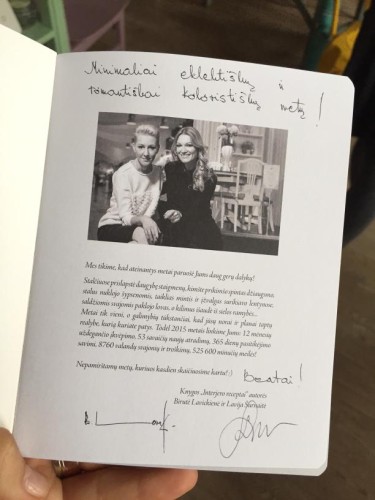 Minimaliai eklektiškų ir
romantiškai koloristiškų metų!
Mes tikime, kad ateinantys metai paruošė Jums daug gerų dalykų!
Stalčiuose prislapstė daugybę staigmenų, kimite prikimšo spintas džiaugsmo,
stalus nuklojo šypsenomis, taiklias mintis ir įžvalgas surikiavo lentynose,
saldžiomis svajonėmis paklojo lovas, o kilimus išaudė iš sėlos ramybės...
Metai tik vieni, o galimybių tūkstančiai, kad jūsų norai ir planai taptų
realybe, kurią kuriate patys. Todėl 2015 metais linkime Jums: 12 mėnesių
uždegančio įkvėpimo, 53 savaičių naujų atradimų, 365 dienų pasitikėjimo
savimi, 8760 valandų svajonių ir troškimų, 525 600 minučių meilės!
Nepamirštamų metų, kuriuos kasdien skaičiuosime kartu! :)
Beatai!
Knygos „Interjero receptai“ autorės
Birutė Lavickienė ir Lavija Šurnaitė